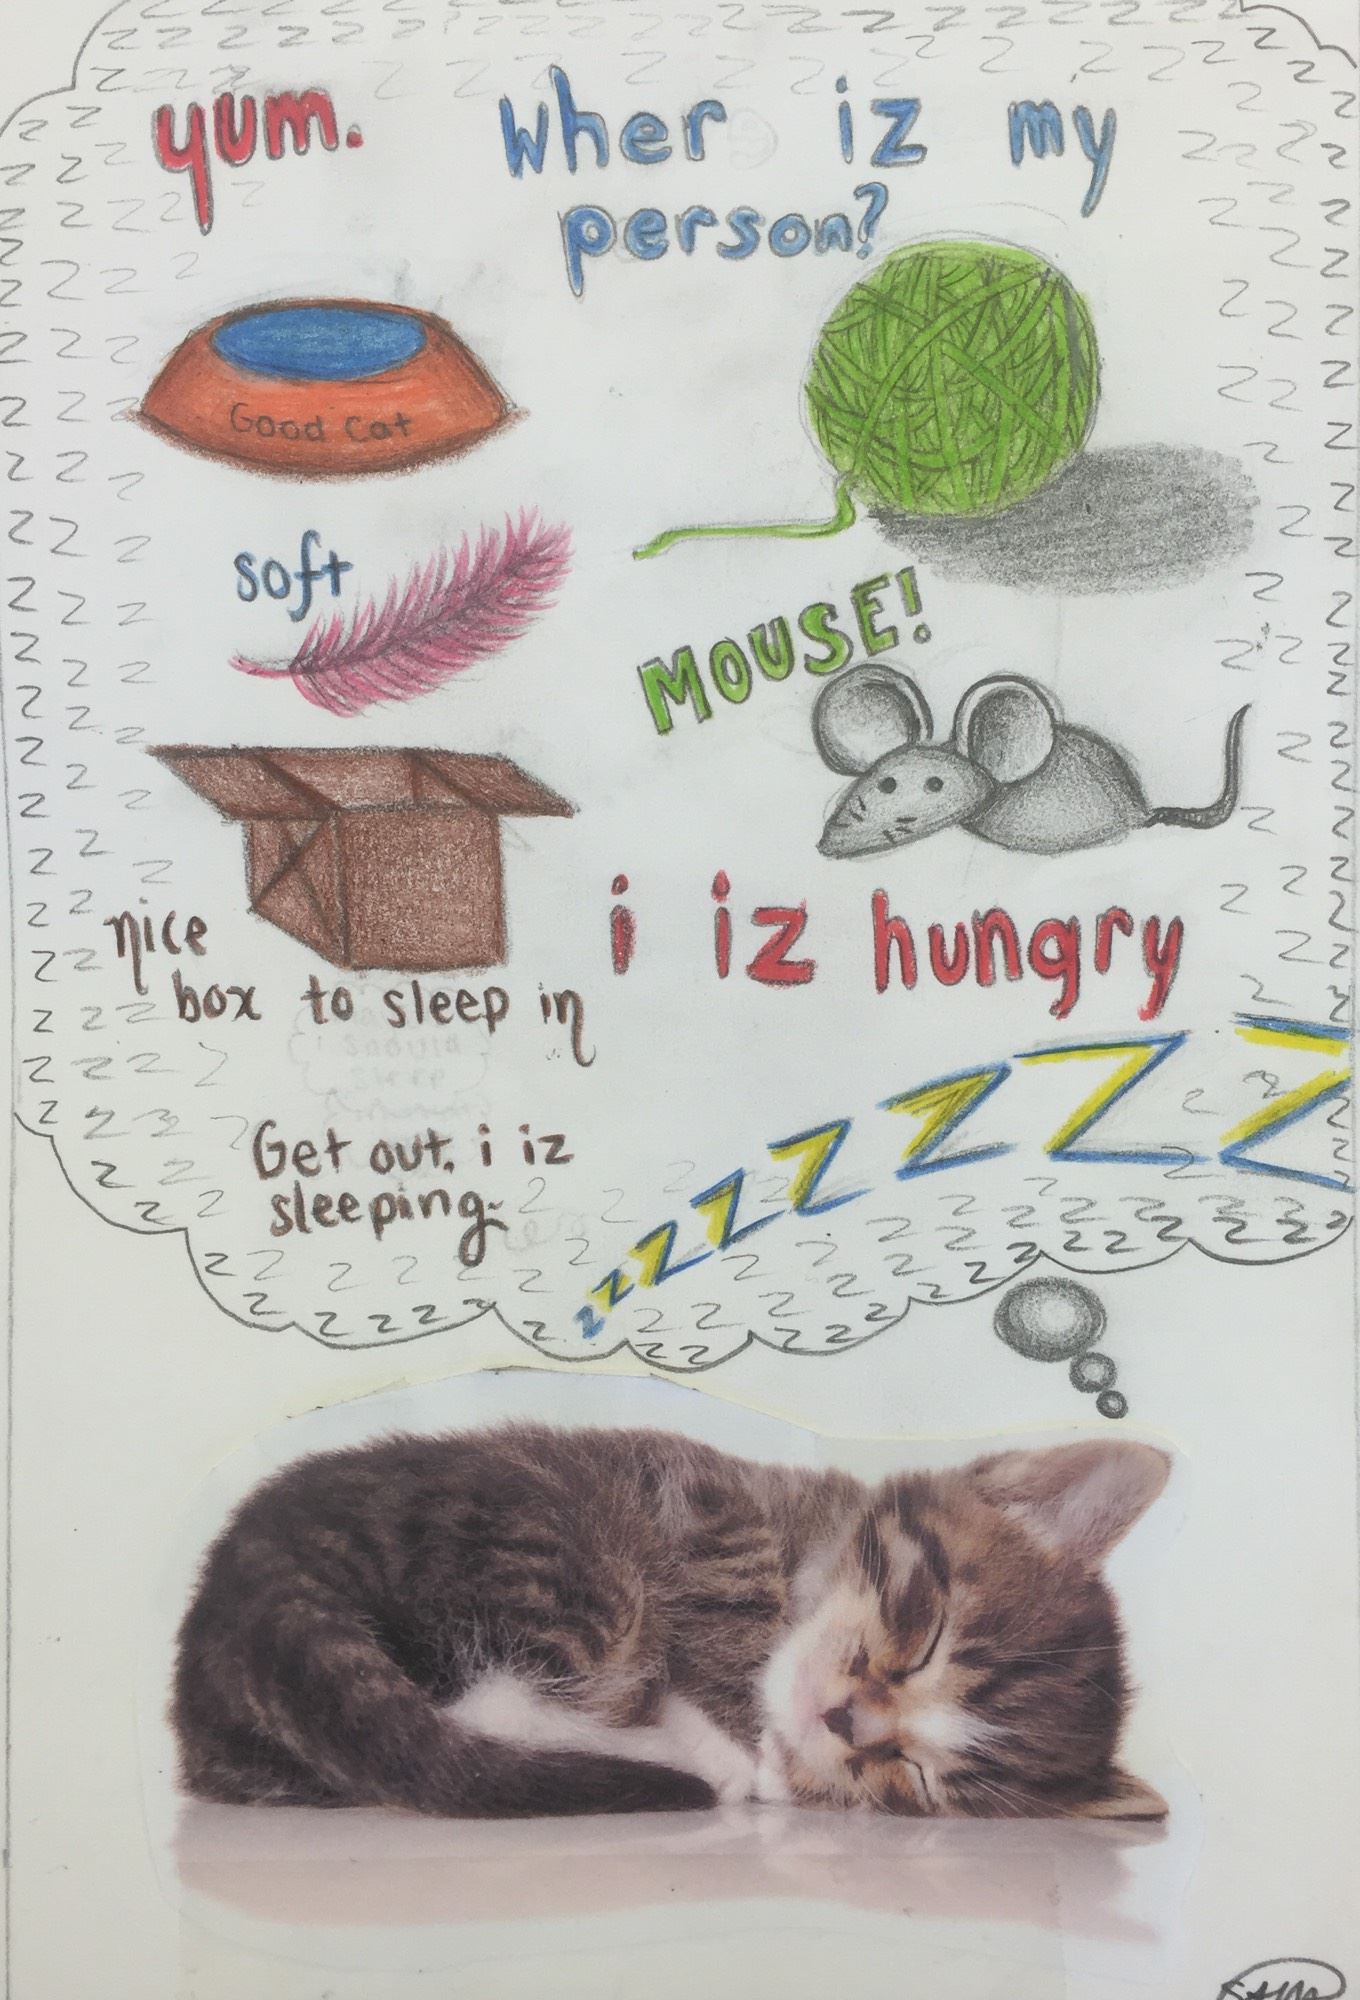 yum.
wher iz my
person?
Good Cat
soft
MOUSE!
nice
box to sleep in
i iz hungry
Get out. i iz
sleeping.
zzzzzzzz